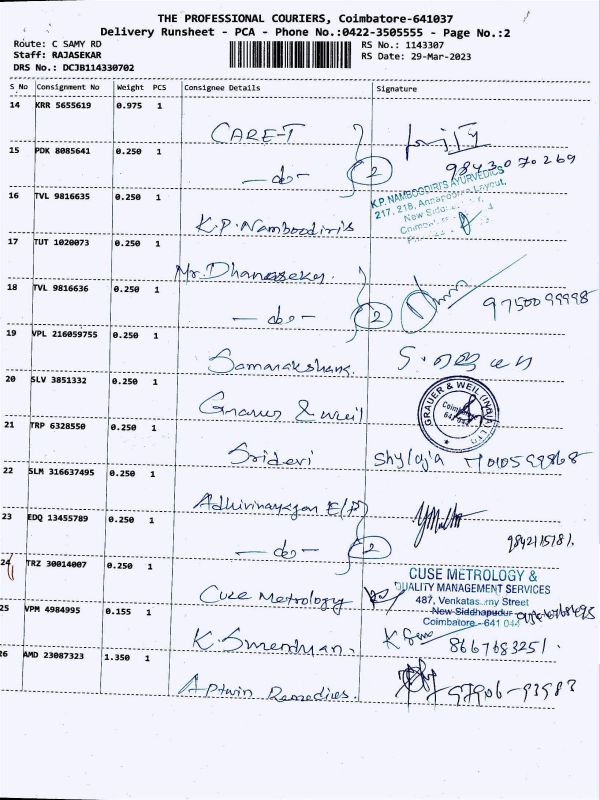 THE PROFESSIONAL COURIERS, Coimbatore-641037
Delivery Runsheet - PCA - Phone No.:0422-3505555 - Page No.:2
Route: C SAMY RD
RS No.: 1143307
Staff: RAJASEKAR
RS Date: 29-Mar-2023
DRS No.: DCJB114330702
S No Consignment No Weight PCS Consignee Details Signature
14 KRR 5655619 0.975 1
CARE-T
15 PDK 8085641 0.250 1
984307 0269
-do- 2
16 TVL 9816635 0.250 1
K.P. NAMBOODIRI'S AYURVEDICS
217, 218, Annapoorna Layout,
K.P. Namboodiris
17 TUT 1020073 0.250 1
Mr. Dhanasekar
18 TVL 9816636 0.250 1
-do- 2 9750099998
19 VPL 216059755 0.250 1
20 SLV 3851332 0.250 1
GRAUER & WEIL (INDIA) LTD
Coimbatore
Grauer & Weil
21 TRP 6328550 0.250 1
Sridevi Shylaja
22 SLM 316637495 0.250 1
Adhivinayagan E/P
23 EDQ 13455789 0.250 1
-do- 2 9842115781.
24 TRZ 30014007 0.250 1
CUSE METROLOGY &
QUALITY MANAGEMENT SERVICES
487, Venkatasamy Street
New Siddhapudur
Coimbatore - 641 044
Cuse Metrology
25 VPM 4984995 0.155 1
8667683251.
26 AMD 23087323 1.350 1
Aptwin Remedies. 97906-93983